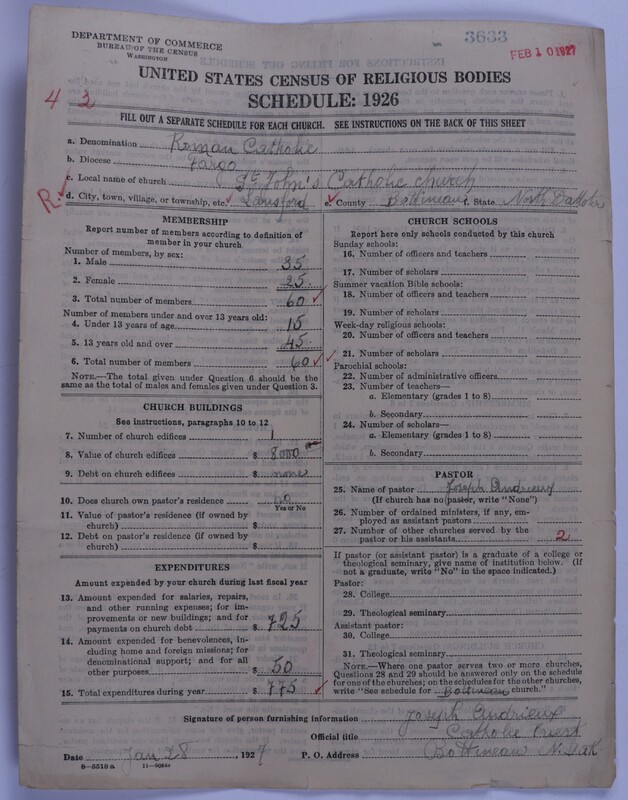 3633
FEB 10 1927
DEPARTMENT OF COMMERCE
BUREAU OF THE CENSUS
WASHINGTON
UNITED STATES CENSUS OF RELIGIOUS BODIES
SCHEDULE: 1926
4 2
FILL OUT A SEPARATE SCHEDULE FOR EACH CHURCH. SEE INSTRUCTIONS ON THE BACK OF THIS SHEET
a. Denomination Roman Catholic
b. Diocese Fargo
c. Local name of church St John's Catholic church
R. d. City, town, village, or township, etc. Lansford e. County Bottineau f. State North Dakota
MEMBERSHIP
Report number of members according to definition of
member in your church
Number of members, by sex:
1. Male 35
2. Female 25
3. Total number of members 60
Number of members under and over 13 years old:
4. Under 13 years of age 15
5. 13 years old and over 45
6. Total number of members 60
NOTE.—The total given under Question 6 should be the
same as the total of males and females given under Question 3.
CHURCH BUILDINGS
See instructions, paragraphs 10 to 12
7. Number of church edifices 1
8. Value of church edifices $ 8000
9. Debt on church edifices $ none
10. Does church own pastor's residence no
Yes or No
11. Value of pastor's residence (if owned by
church) $
12. Debt on pastor's residence (if owned by
church) $
EXPENDITURES
Amount expended by your church during last fiscal year
13. Amount expended for salaries, repairs,
and other running expenses; for im-
provements or new buildings; and for
payments on church debt $ 725
14. Amount expended for benevolences, in-
cluding home and foreign missions; for
denominational support; and for all
other purposes $ 50
15. Total expenditures during year $ 775
CHURCH SCHOOLS
Report here only schools conducted by this church
Sunday schools:
16. Number of officers and teachers
17. Number of scholars
Summer vacation Bible schools:
18. Number of officers and teachers
19. Number of scholars
Week-day religious schools:
20. Number of officers and teachers
21. Number of scholars
Parochial schools:
22. Number of administrative officers
23. Number of teachers—
a. Elementary (grades 1 to 8)
b. Secondary
24. Number of scholars—
a. Elementary (grades 1 to 8)
b. Secondary
PASTOR
25. Name of pastor Joseph Andrieux
(If church has no pastor, write "None")
26. Number of ordained ministers, if any, em-
ployed as assistant pastors
27. Number of other churches served by the
pastor or his assistants 2
If pastor (or assistant pastor) is a graduate of a college or
theological seminary, give name of institution below. (If
not a graduate, write "No" in the space indicated.)
Pastor:
28. College
29. Theological seminary
Assistant pastor:
30. College
31. Theological seminary
NOTE.—Where one pastor serves two or more churches,
Questions 28 and 29 should be answered only on the schedule
for one of the churches; on the schedules for the other churches,
write "See schedule for Bottineau church."
Signature of person furnishing information Joseph Andrieux
Official title Catholic Priest
Date Jan 28, 1927 P. O. Address Bottineau N. Dak
8—5518a